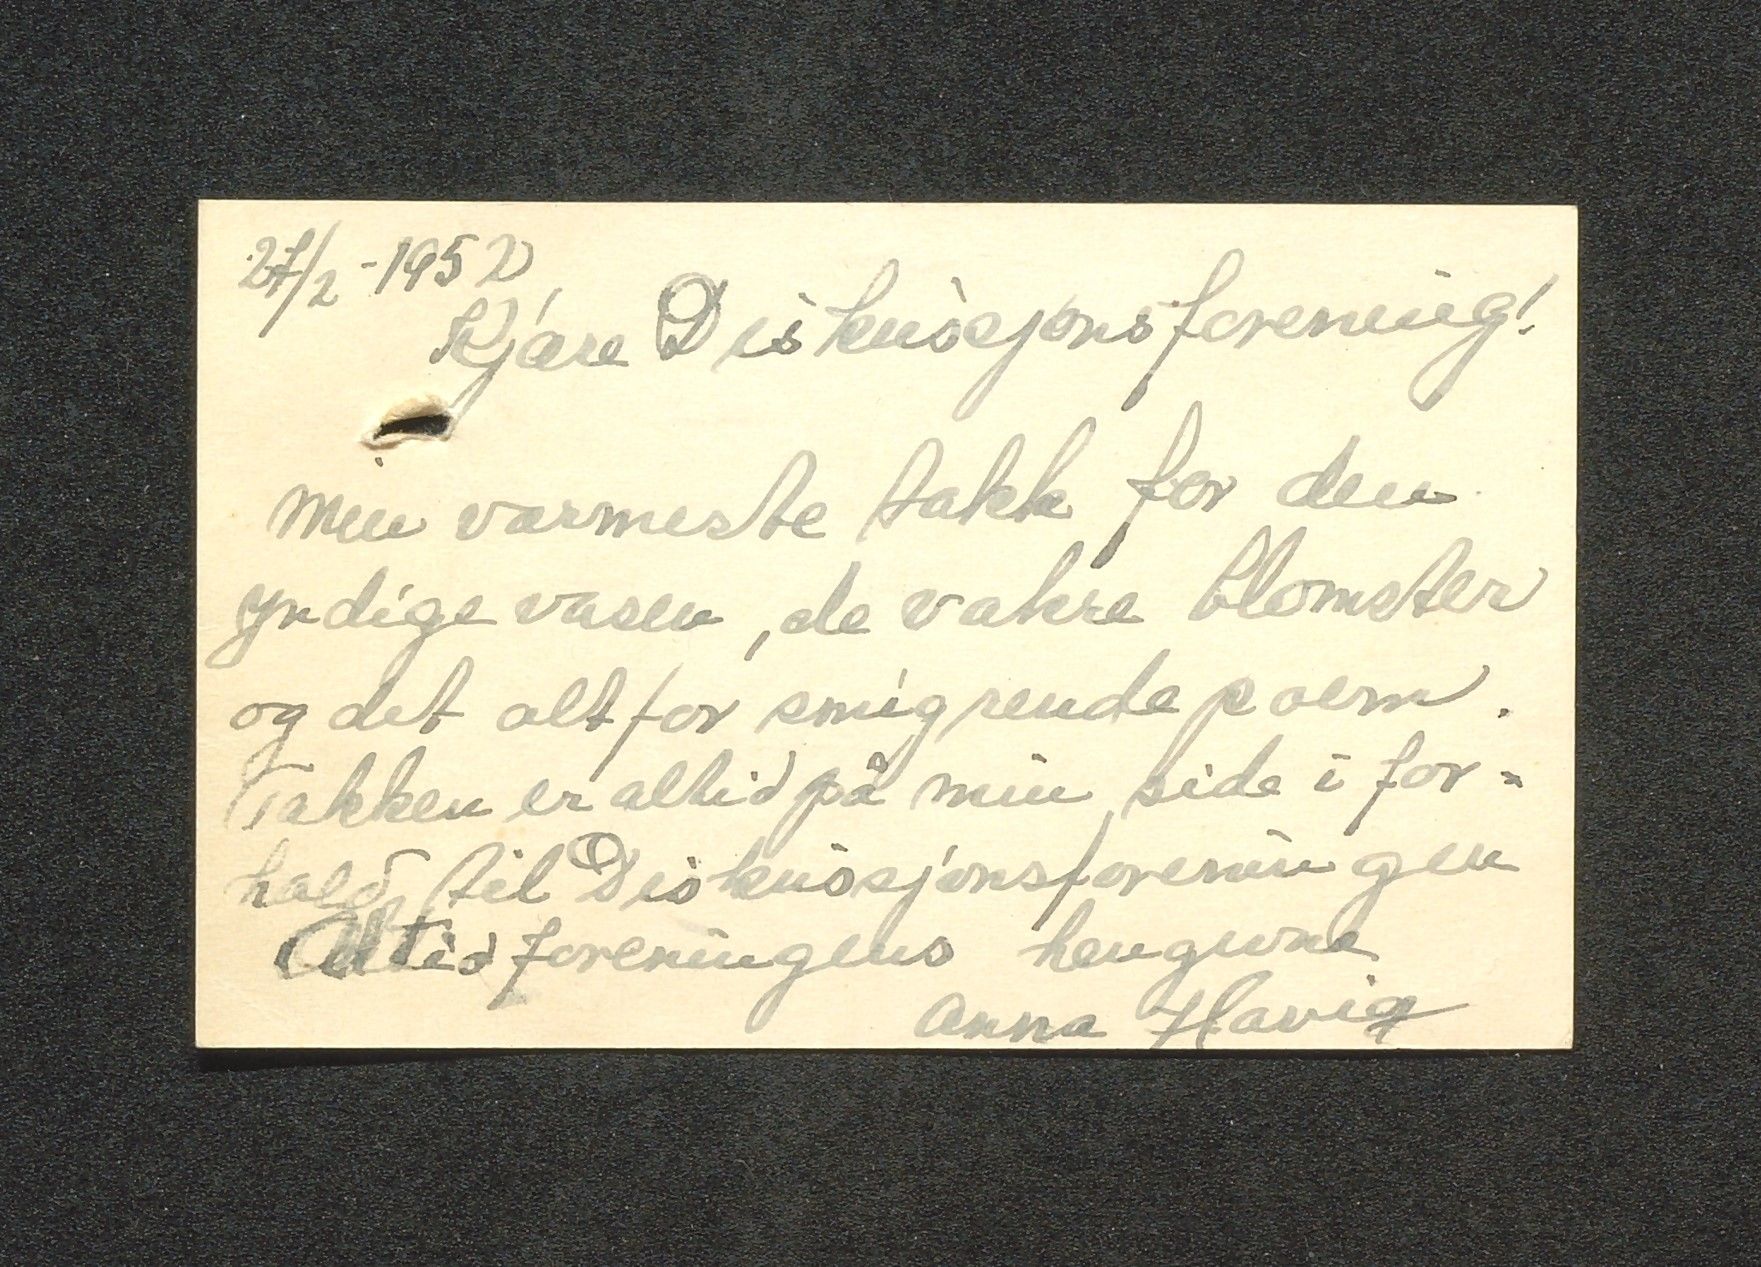 27/2 - 1952
Kjære Diskusjonsforening!
Min varmeste takk for den
yndige vasen, de vakre blomster
og det altfor smigrende poem.
Takken er altid på min side i for-
hold til Diskusjonsforeningen
Altid foreningens hengivne
Anna Havig